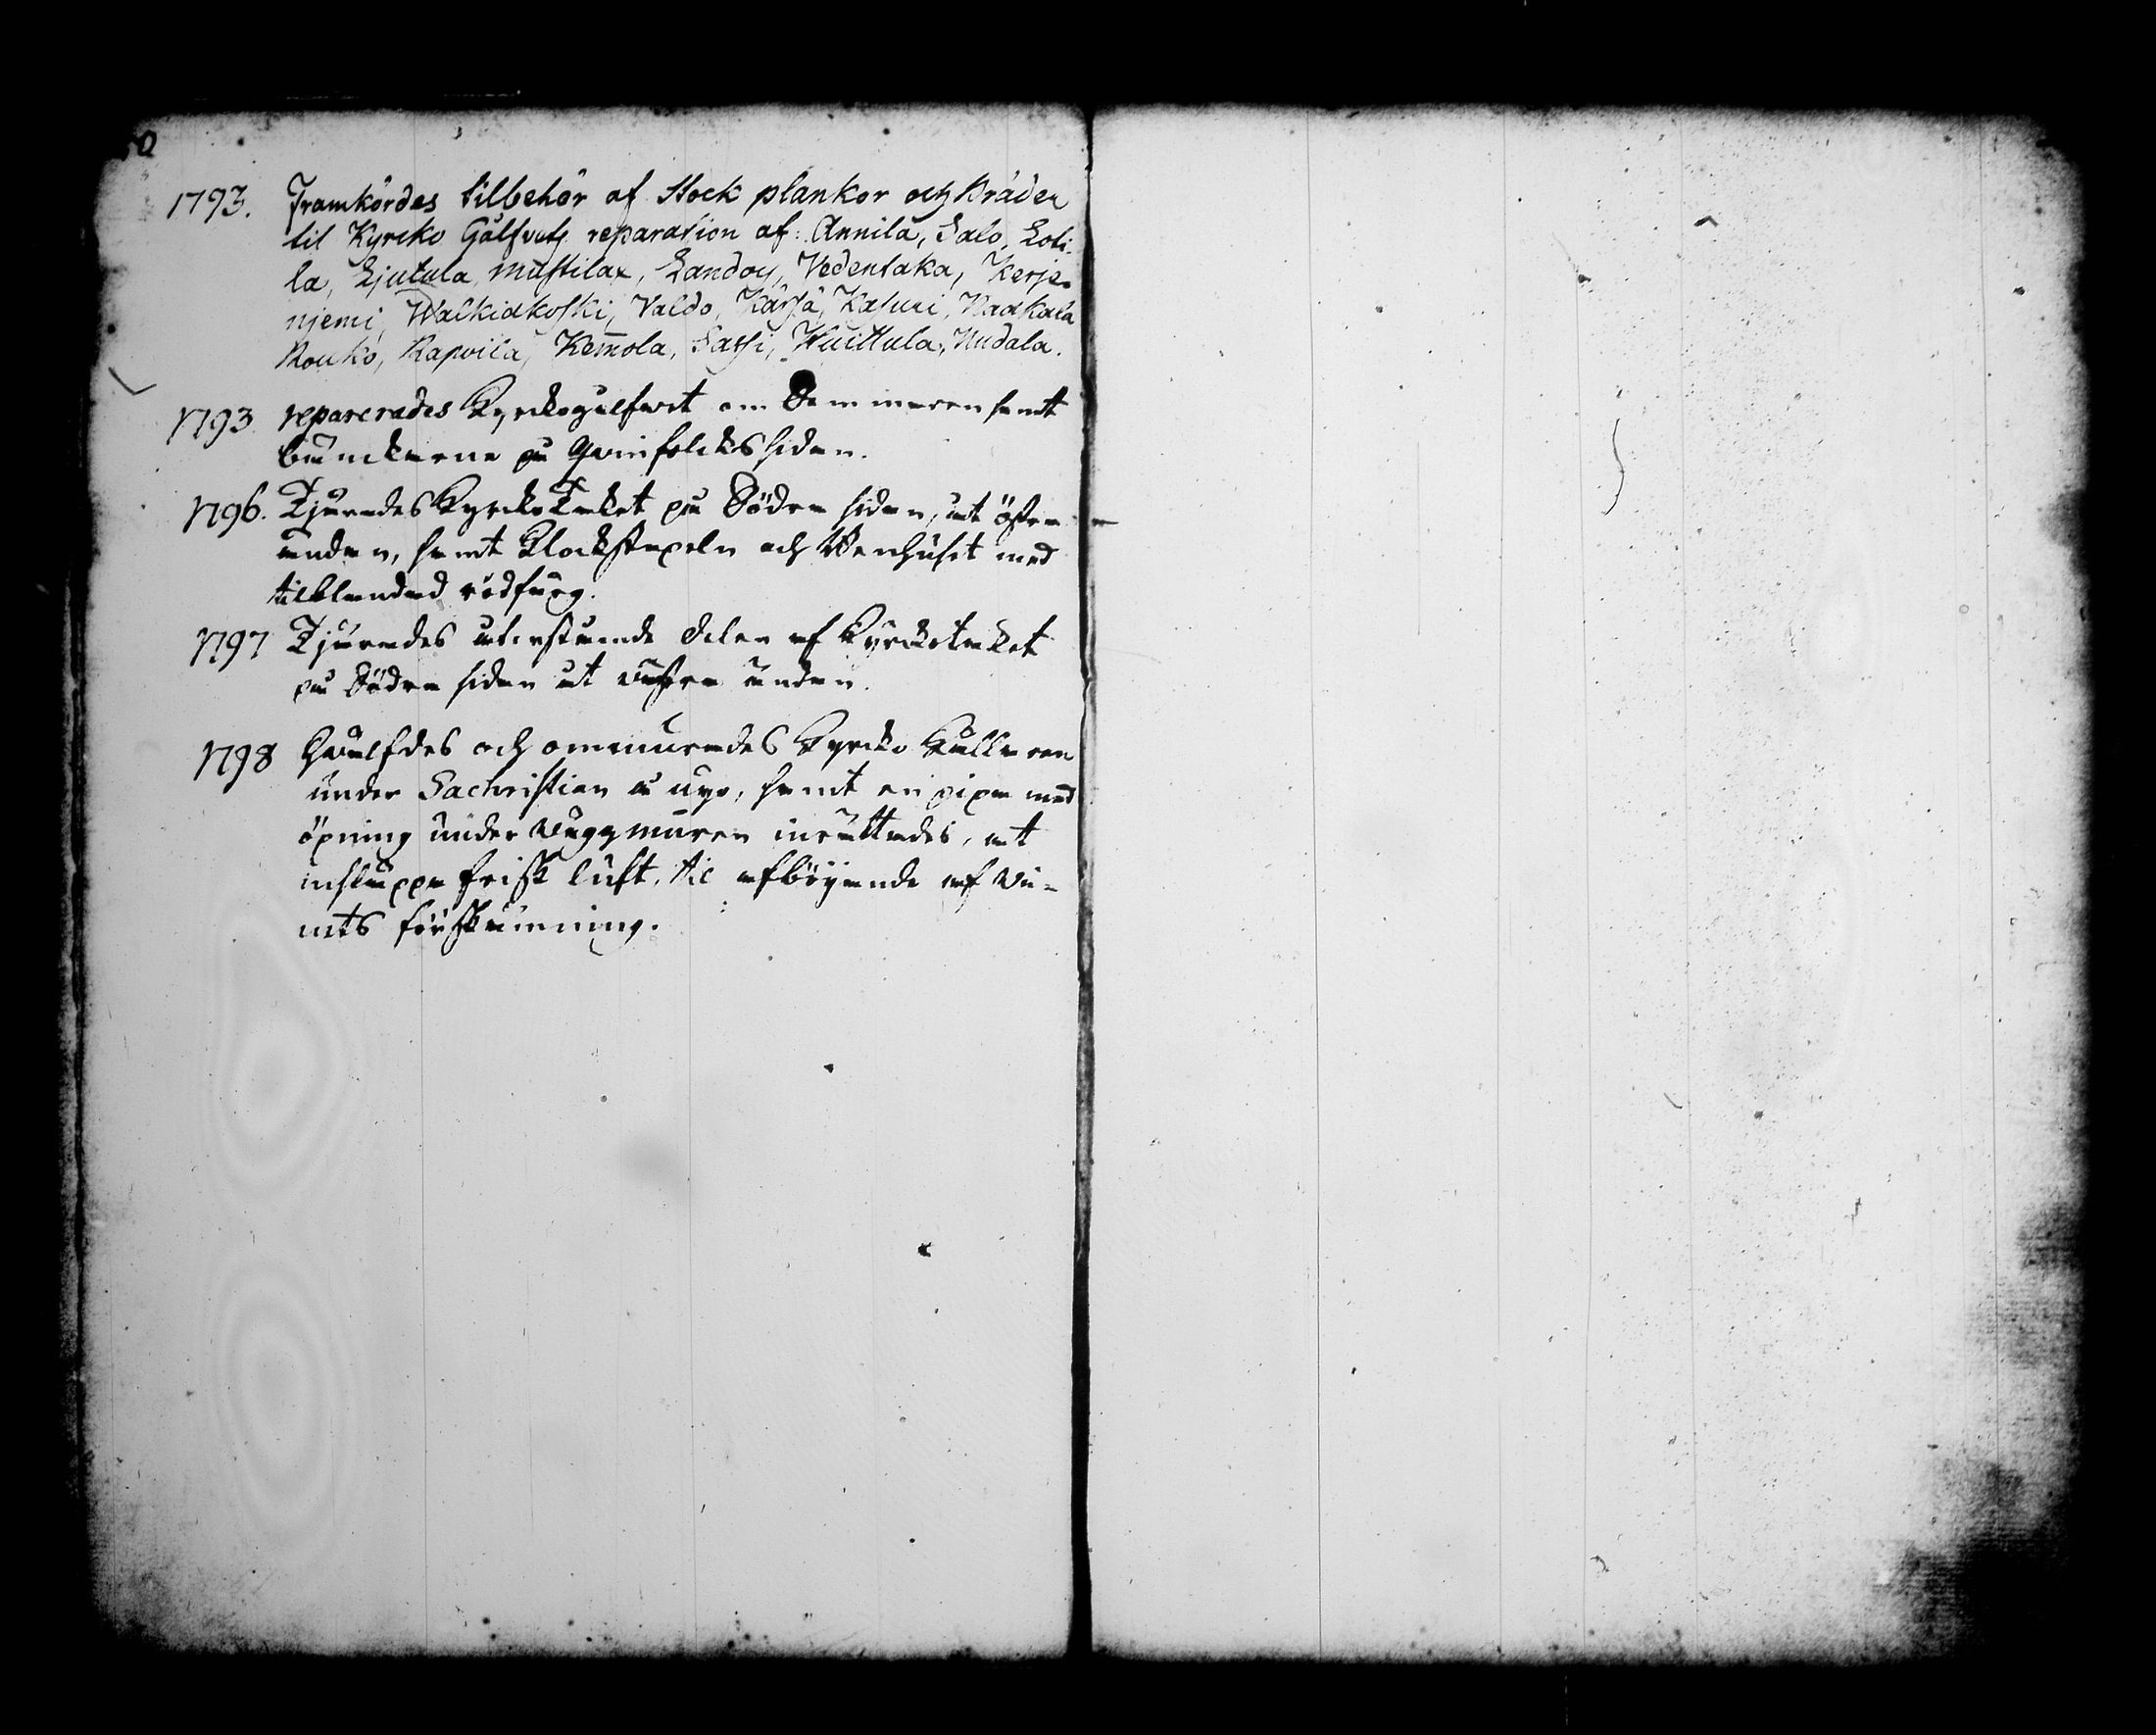 1793. Framkördes tilbehör af Stock plankor och Bräder
til Kyrcko Gålfvets reparation af: Annila, Salo, Loti-
la, Ljutula, Mustilax, Landoy, Vedentaka, Kerje-
njemi, Walkiakoski, Valdo, Kärsä, Kasuri, Naakala
Rouko, Rapoila, Kem̅ola, Sassi, Wuittula, Uudala.
1793 reparerades Kyrckogålfwet om Sommaren samt
bänckarna på Qwinfolcks sidan.
1796. Tjärades KyrckoTaket på Södra sidan, åt östra
ändan, samt Klockstapeln och Wenhuset med
tilblandad rödfärg.
1797 Tjärades återstående delen af Kyrckotaket
på Södra sidan åt västra ändan.
1798 Hwälfdes och ommurades Kyrcko Källaren
under Sachristian å nyo, samt en pipa med
öpning under väggmuren inrättades, at
inslappa frisk luft, til afböjande af Vi-
nets förskämning.